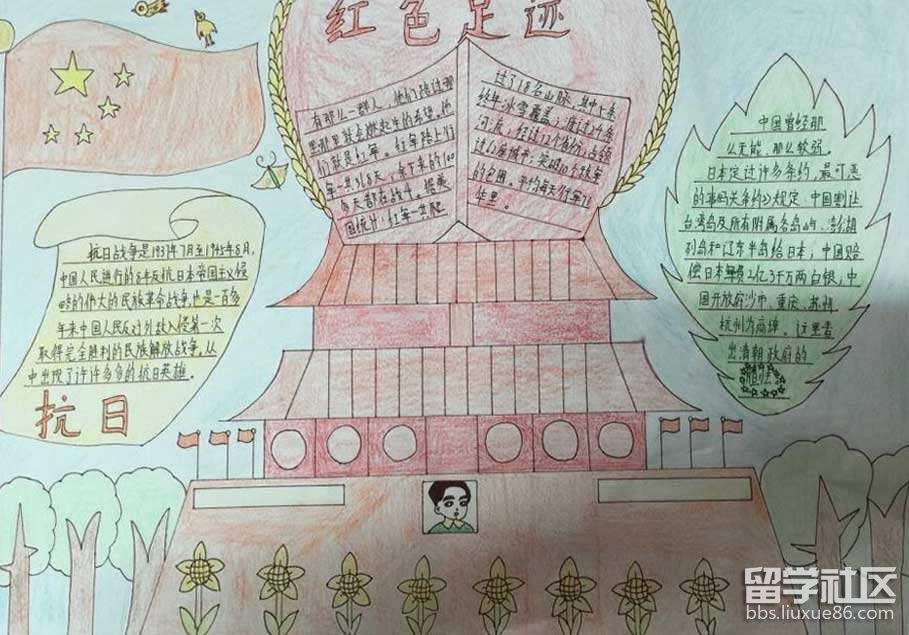 红色足迹
有那么一群人,他们路过哪
里哪里就会燃起生的希望,他
们就是红军。红军路上行
军一共368天,余下来的100
多天都在战斗。据美
国统计,红军一共爬
过了18名山脉,其中5条
终年冰雪覆盖;渡过24条
河流;经过12个省份;占领
过62座城市;突破10个敌军
的包围。平均每天行军71
华里。
中国曾经那
么无能,那么软弱。
日本定过许多条约,最可恶
的事马关条约≫规定,中国割让
台湾岛及所有附属各岛屿、澎湖
列岛和辽东半岛给日本;中国赔
偿日本军费2亿3千万两白银;中
国开放府沙市、重庆、苏州
杭州为商埠。这里看
出清朝政府的
抗日战争是1937年7月至1945年8月,
中国人民进行的8年反抗日本帝国主义侵
略的伟大的民族革命战争也是一百多
年来中国人民反对外敌入侵第一次
取得完全胜利的民族解放战争。从
中出现了许许多多的抗日英雄。
抗日
留学社区
bbs.liuxue86.com